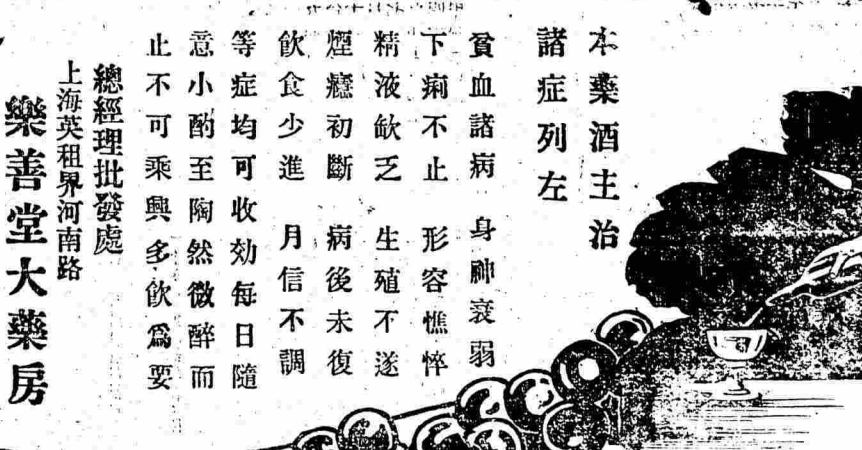 本藥酒主治
諸症列左
貧血諸病　身神衰弱
下痢不止　形容憔悴
精液缺乏　生殖不遂
煙癮初斷　病後未復
飲食少進　月信不調
等症均可收効每日隨
意小酌至陶然微醉而
止不可乘興多飲爲要
總經理批發處
上海英租界河南路
樂善堂大藥房